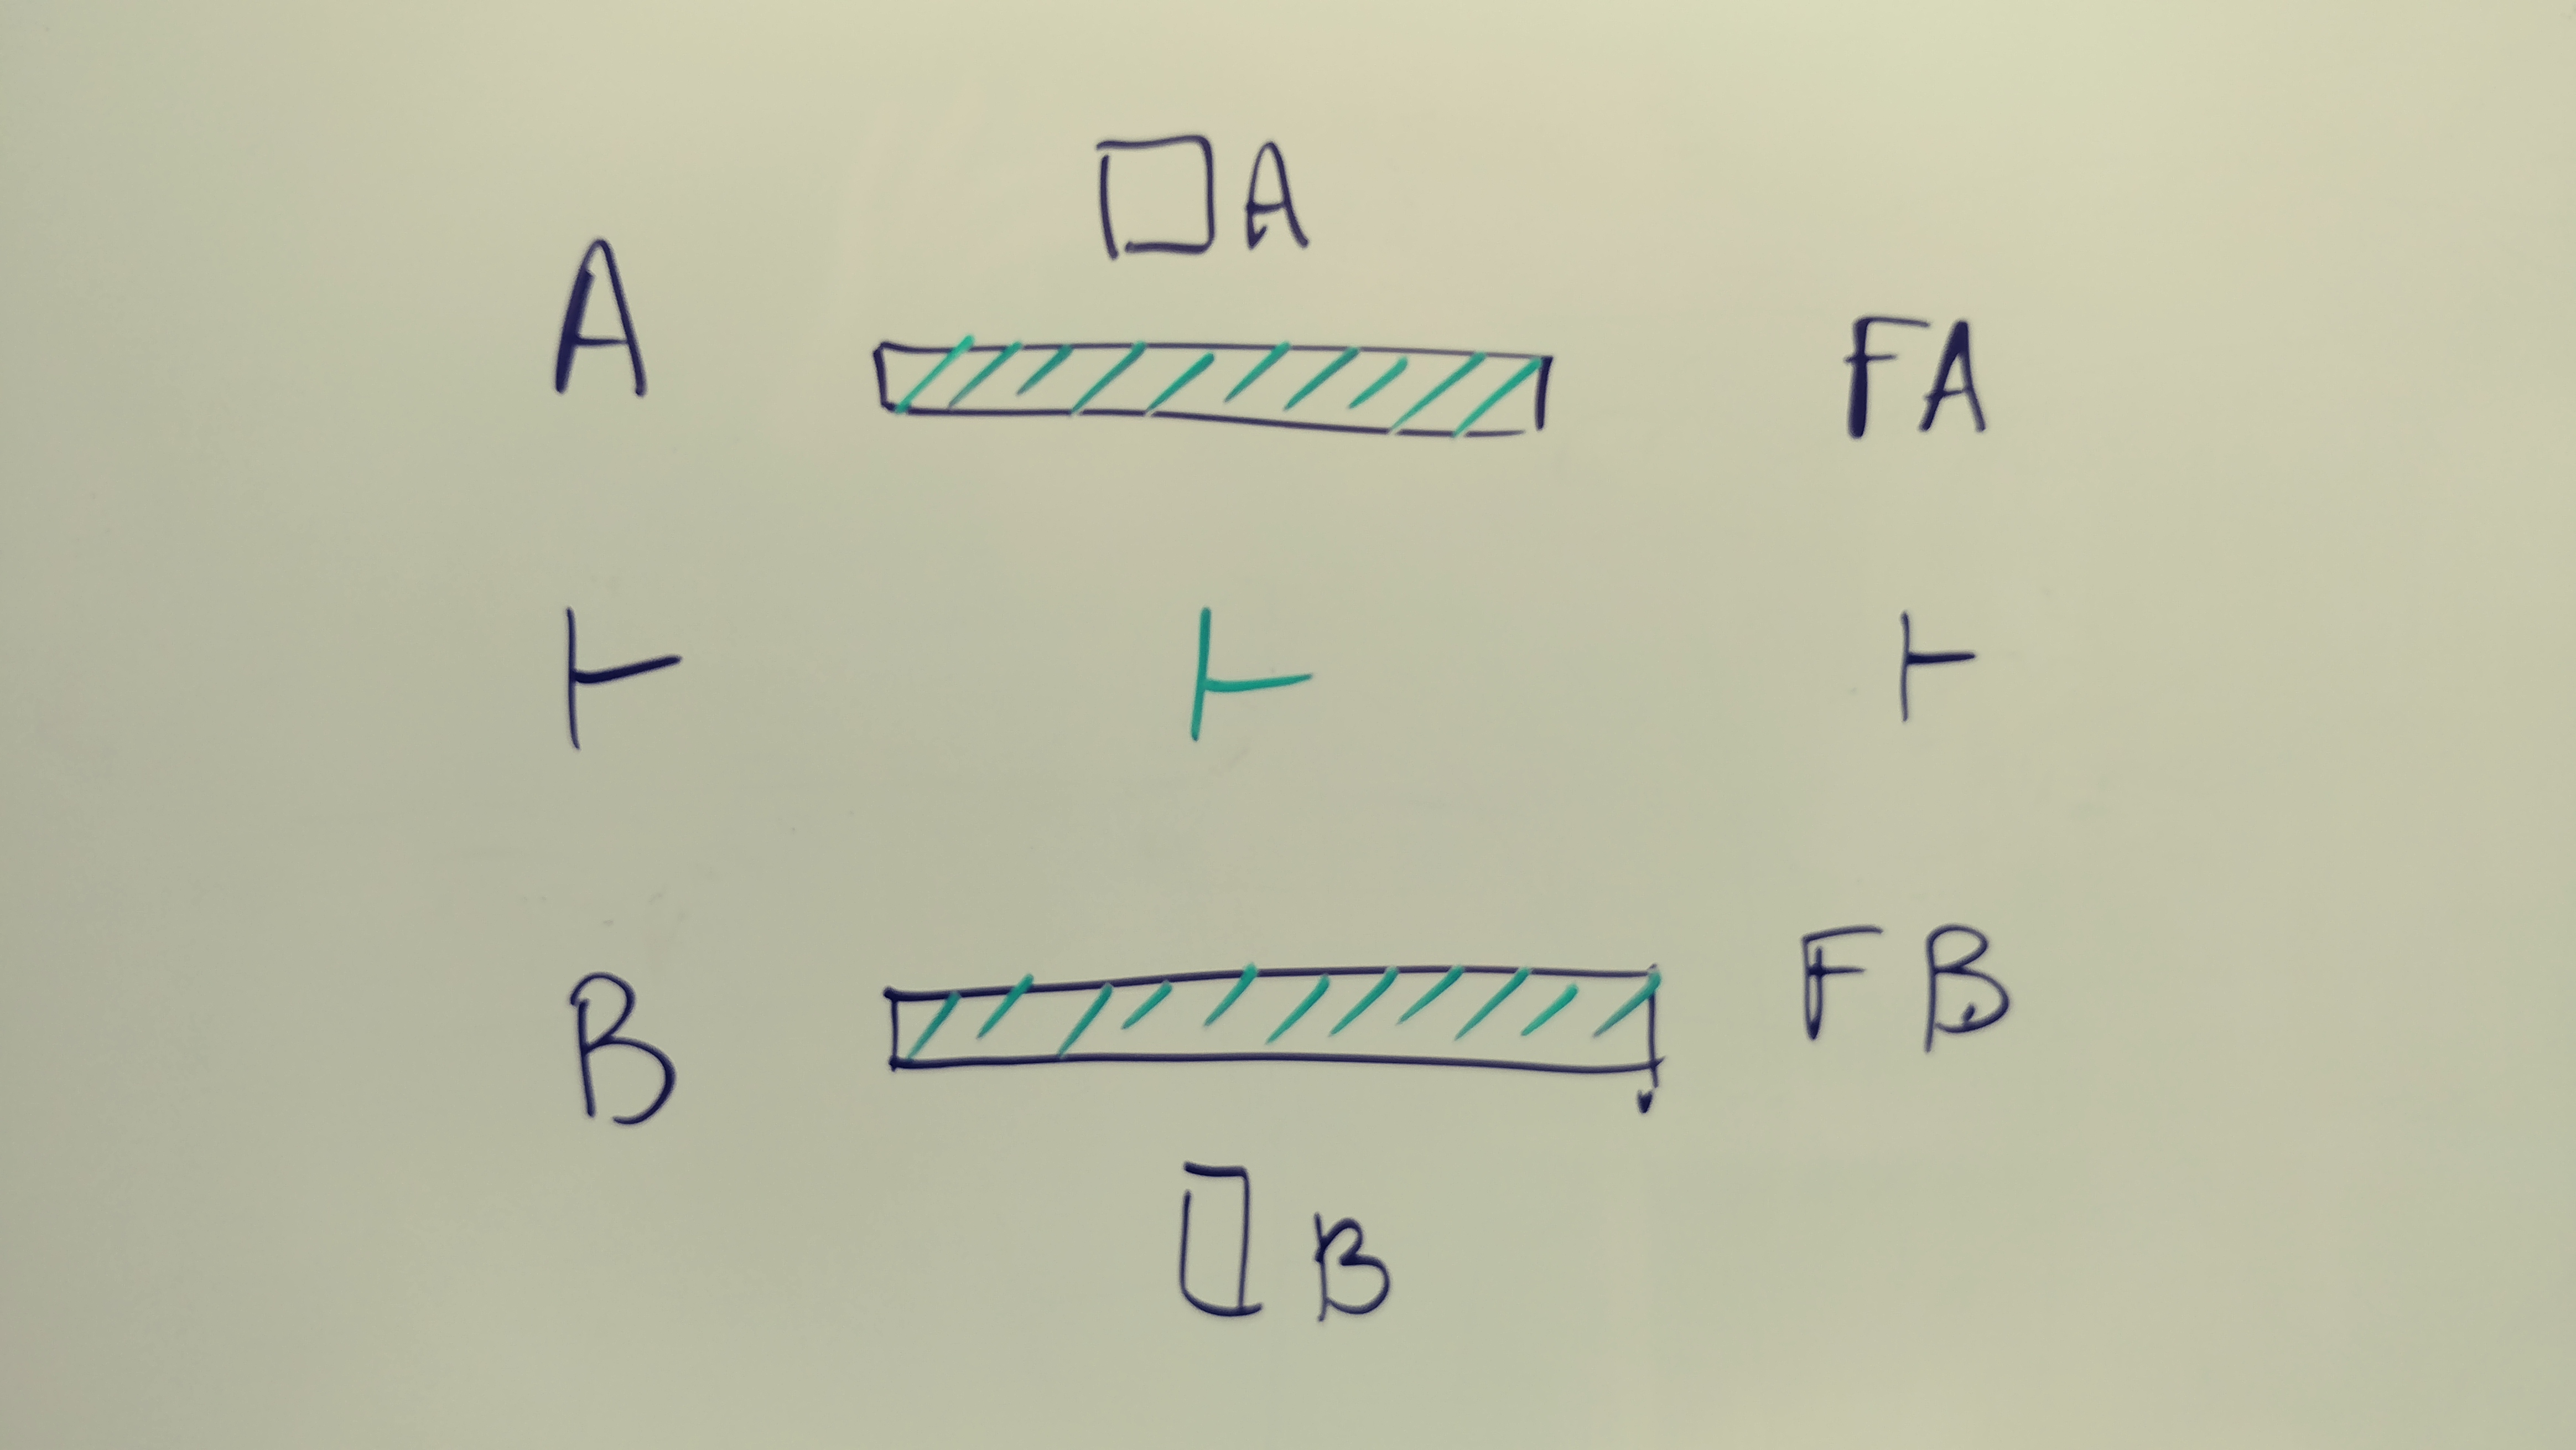 □A
A FA
⊢ ⊢ ⊢
B FB
□B